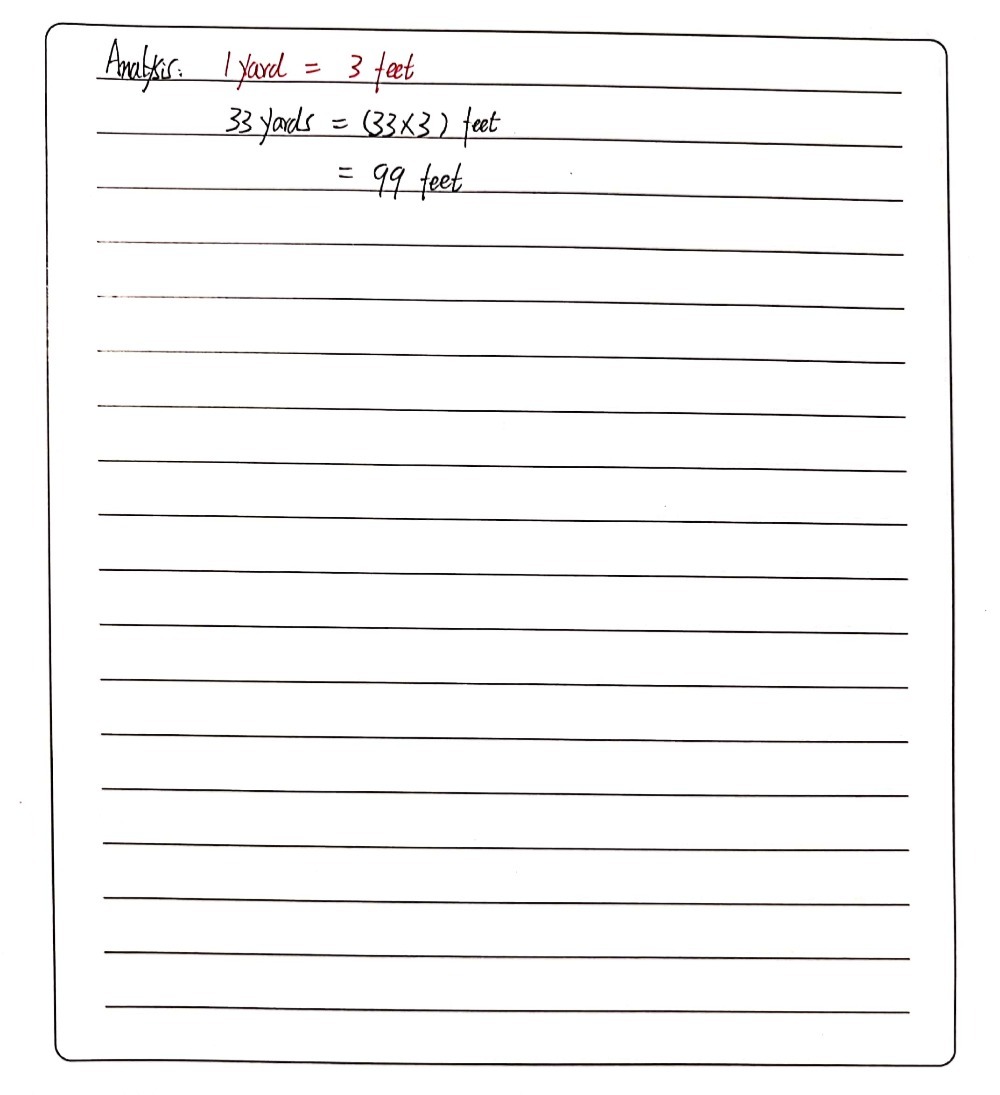 Analysis: 1 yard = 3 feet
33 yards = (33×3) feet
= 99 feet